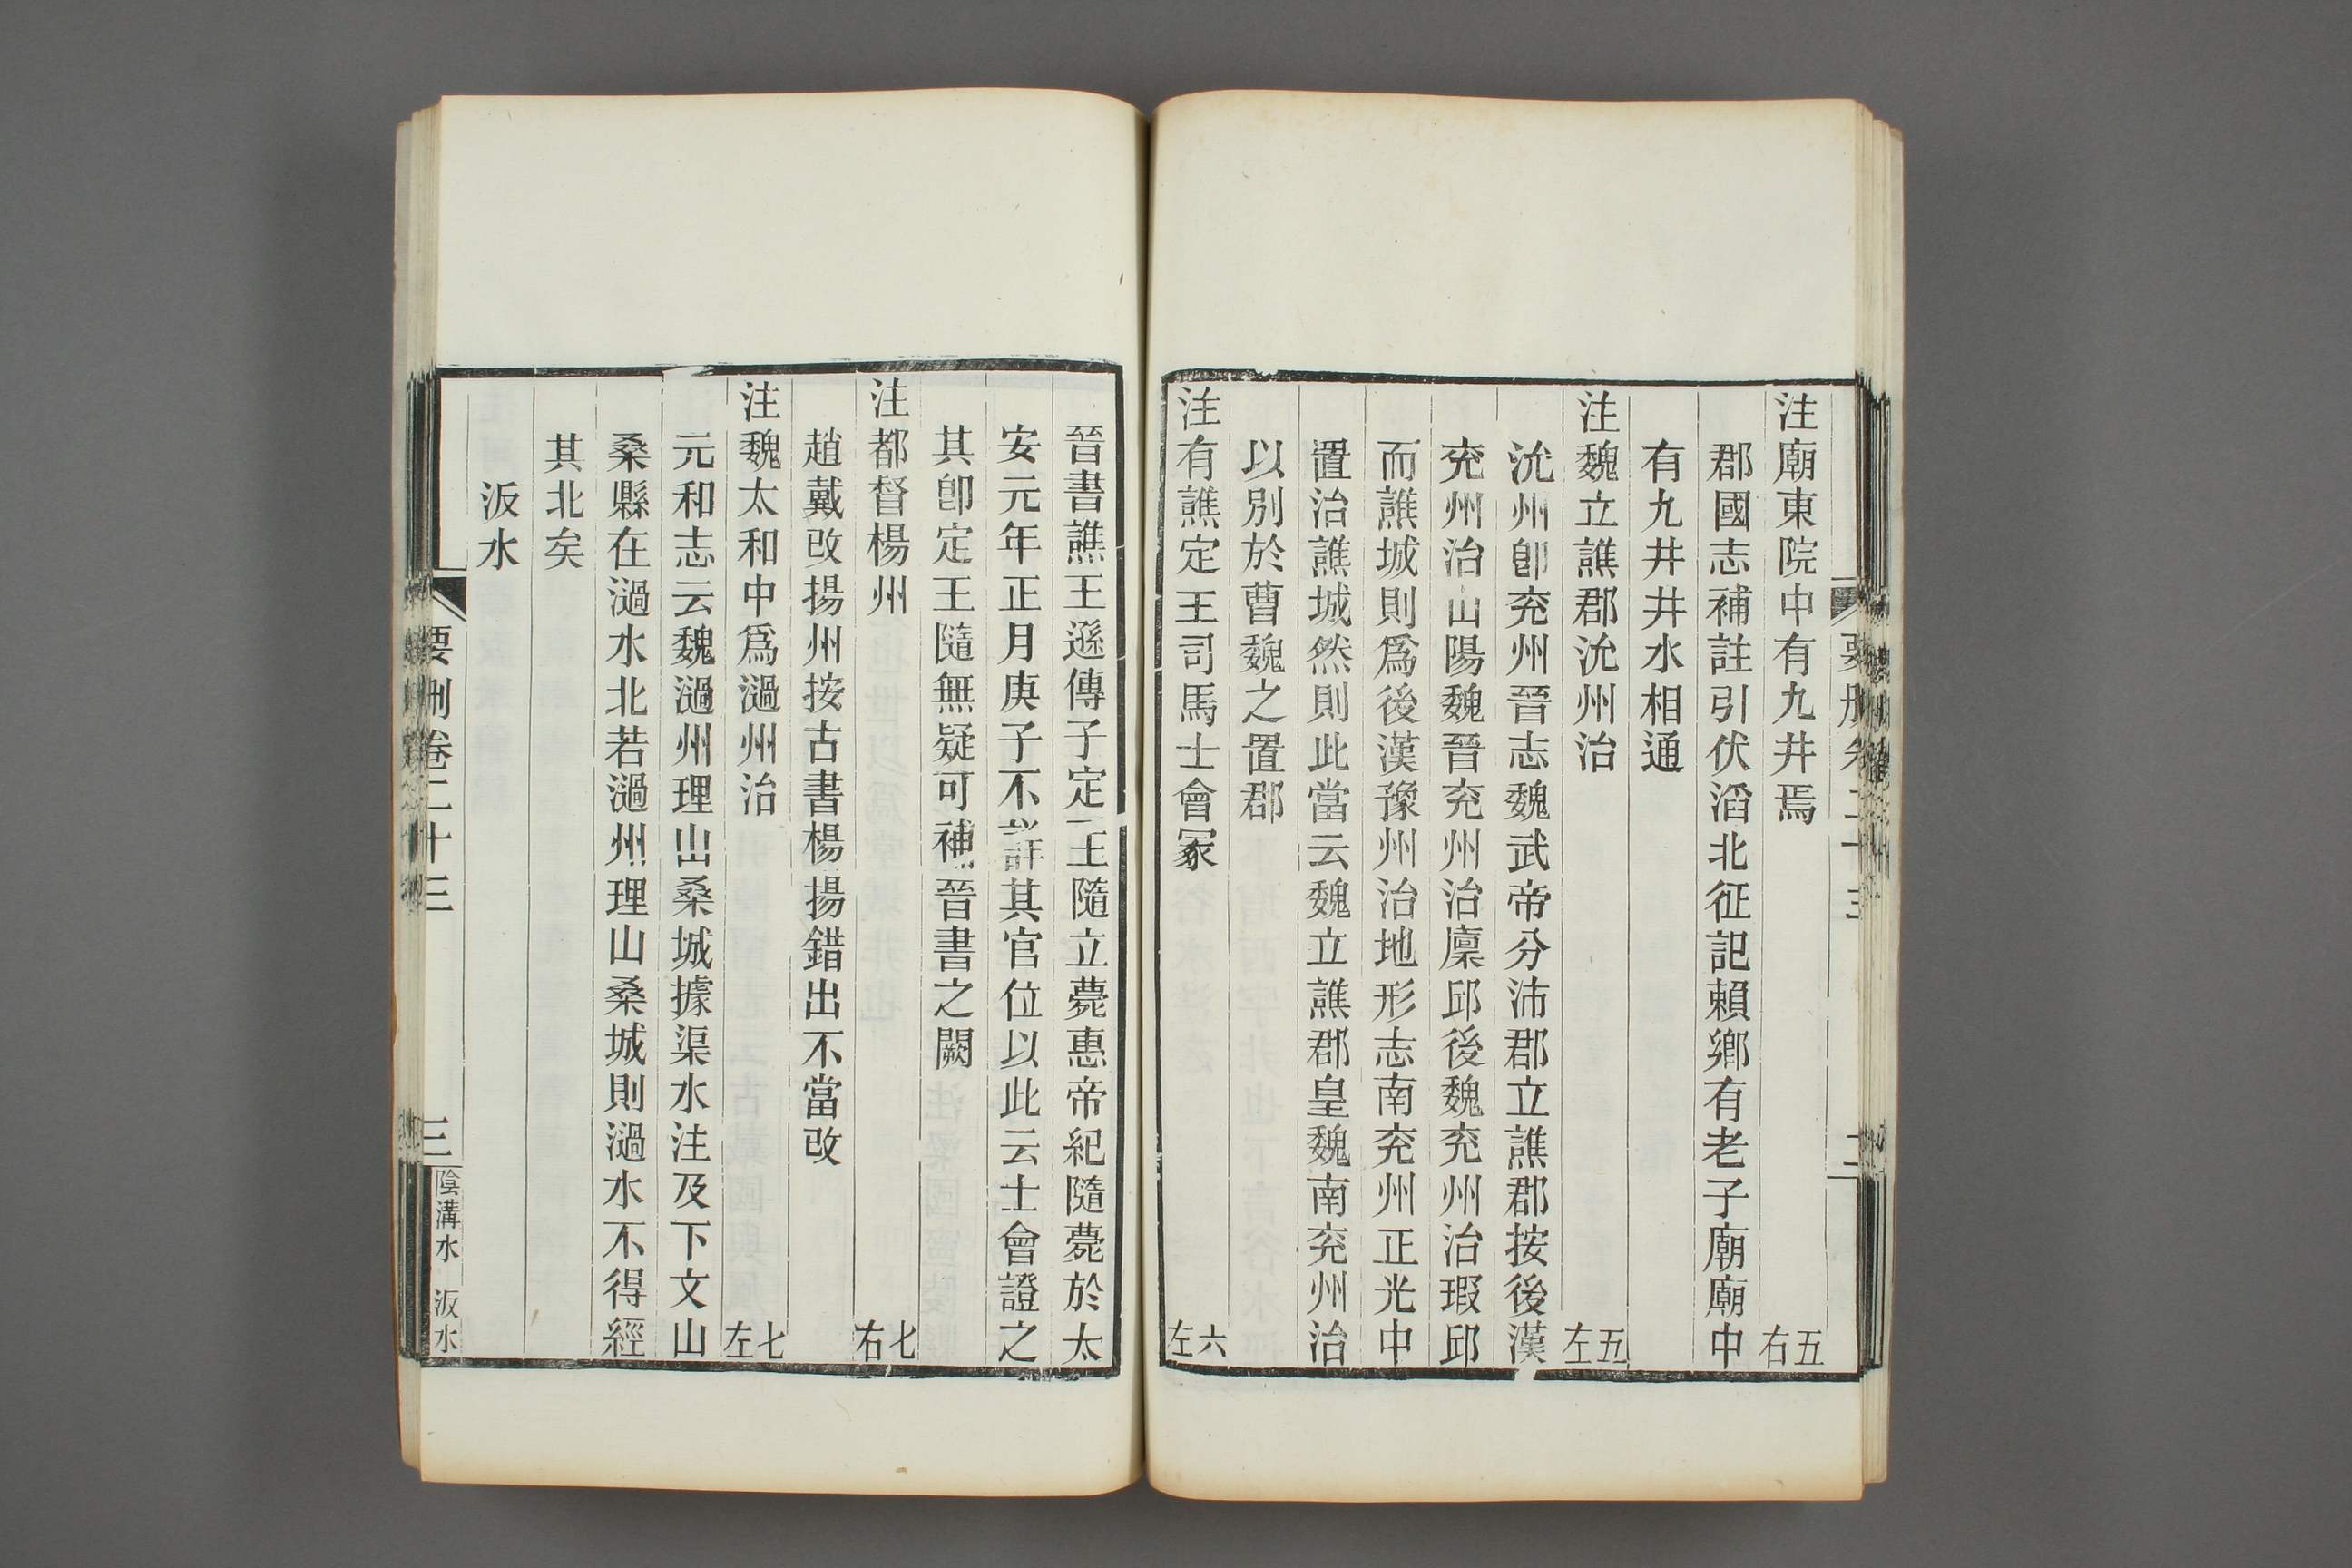 注廟東院中有九井焉 五右
郡國志補註引伏滔北征記賴鄉有老子廟廟中
有九井井水相通
注魏立譙郡沇州治 五左
沇州卽兖州晉志魏武帝分沛郡立譙郡按後漢
兖州治山陽魏晉兖州治廩邱後魏兖州治瑕邱
而譙城則爲後漢豫州治地形志南兖州正光中
置治譙城然則此當云魏立譙郡皇魏南兖州治
以別於曹魏之置郡
注有譙定王司馬士會冢 六左
晉書譙王遜傳子定王隨立薨惠帝紀隨薨於太
安元年正月庚子不詳其官位以此云士會證之
其卽定王隨無疑可補晉書之闕
注都督楊州 七右
趙戴改揚州按古書楊揚錯出不當改
注魏太和中爲濄州治 七左
元和志云魏濄州理山桑城據渠水注及下文山
桑縣在濄水北若濄州理山桑城則濄水不得經
其北矣
汳水
要刪卷二十三 三 陰溝水 汳水